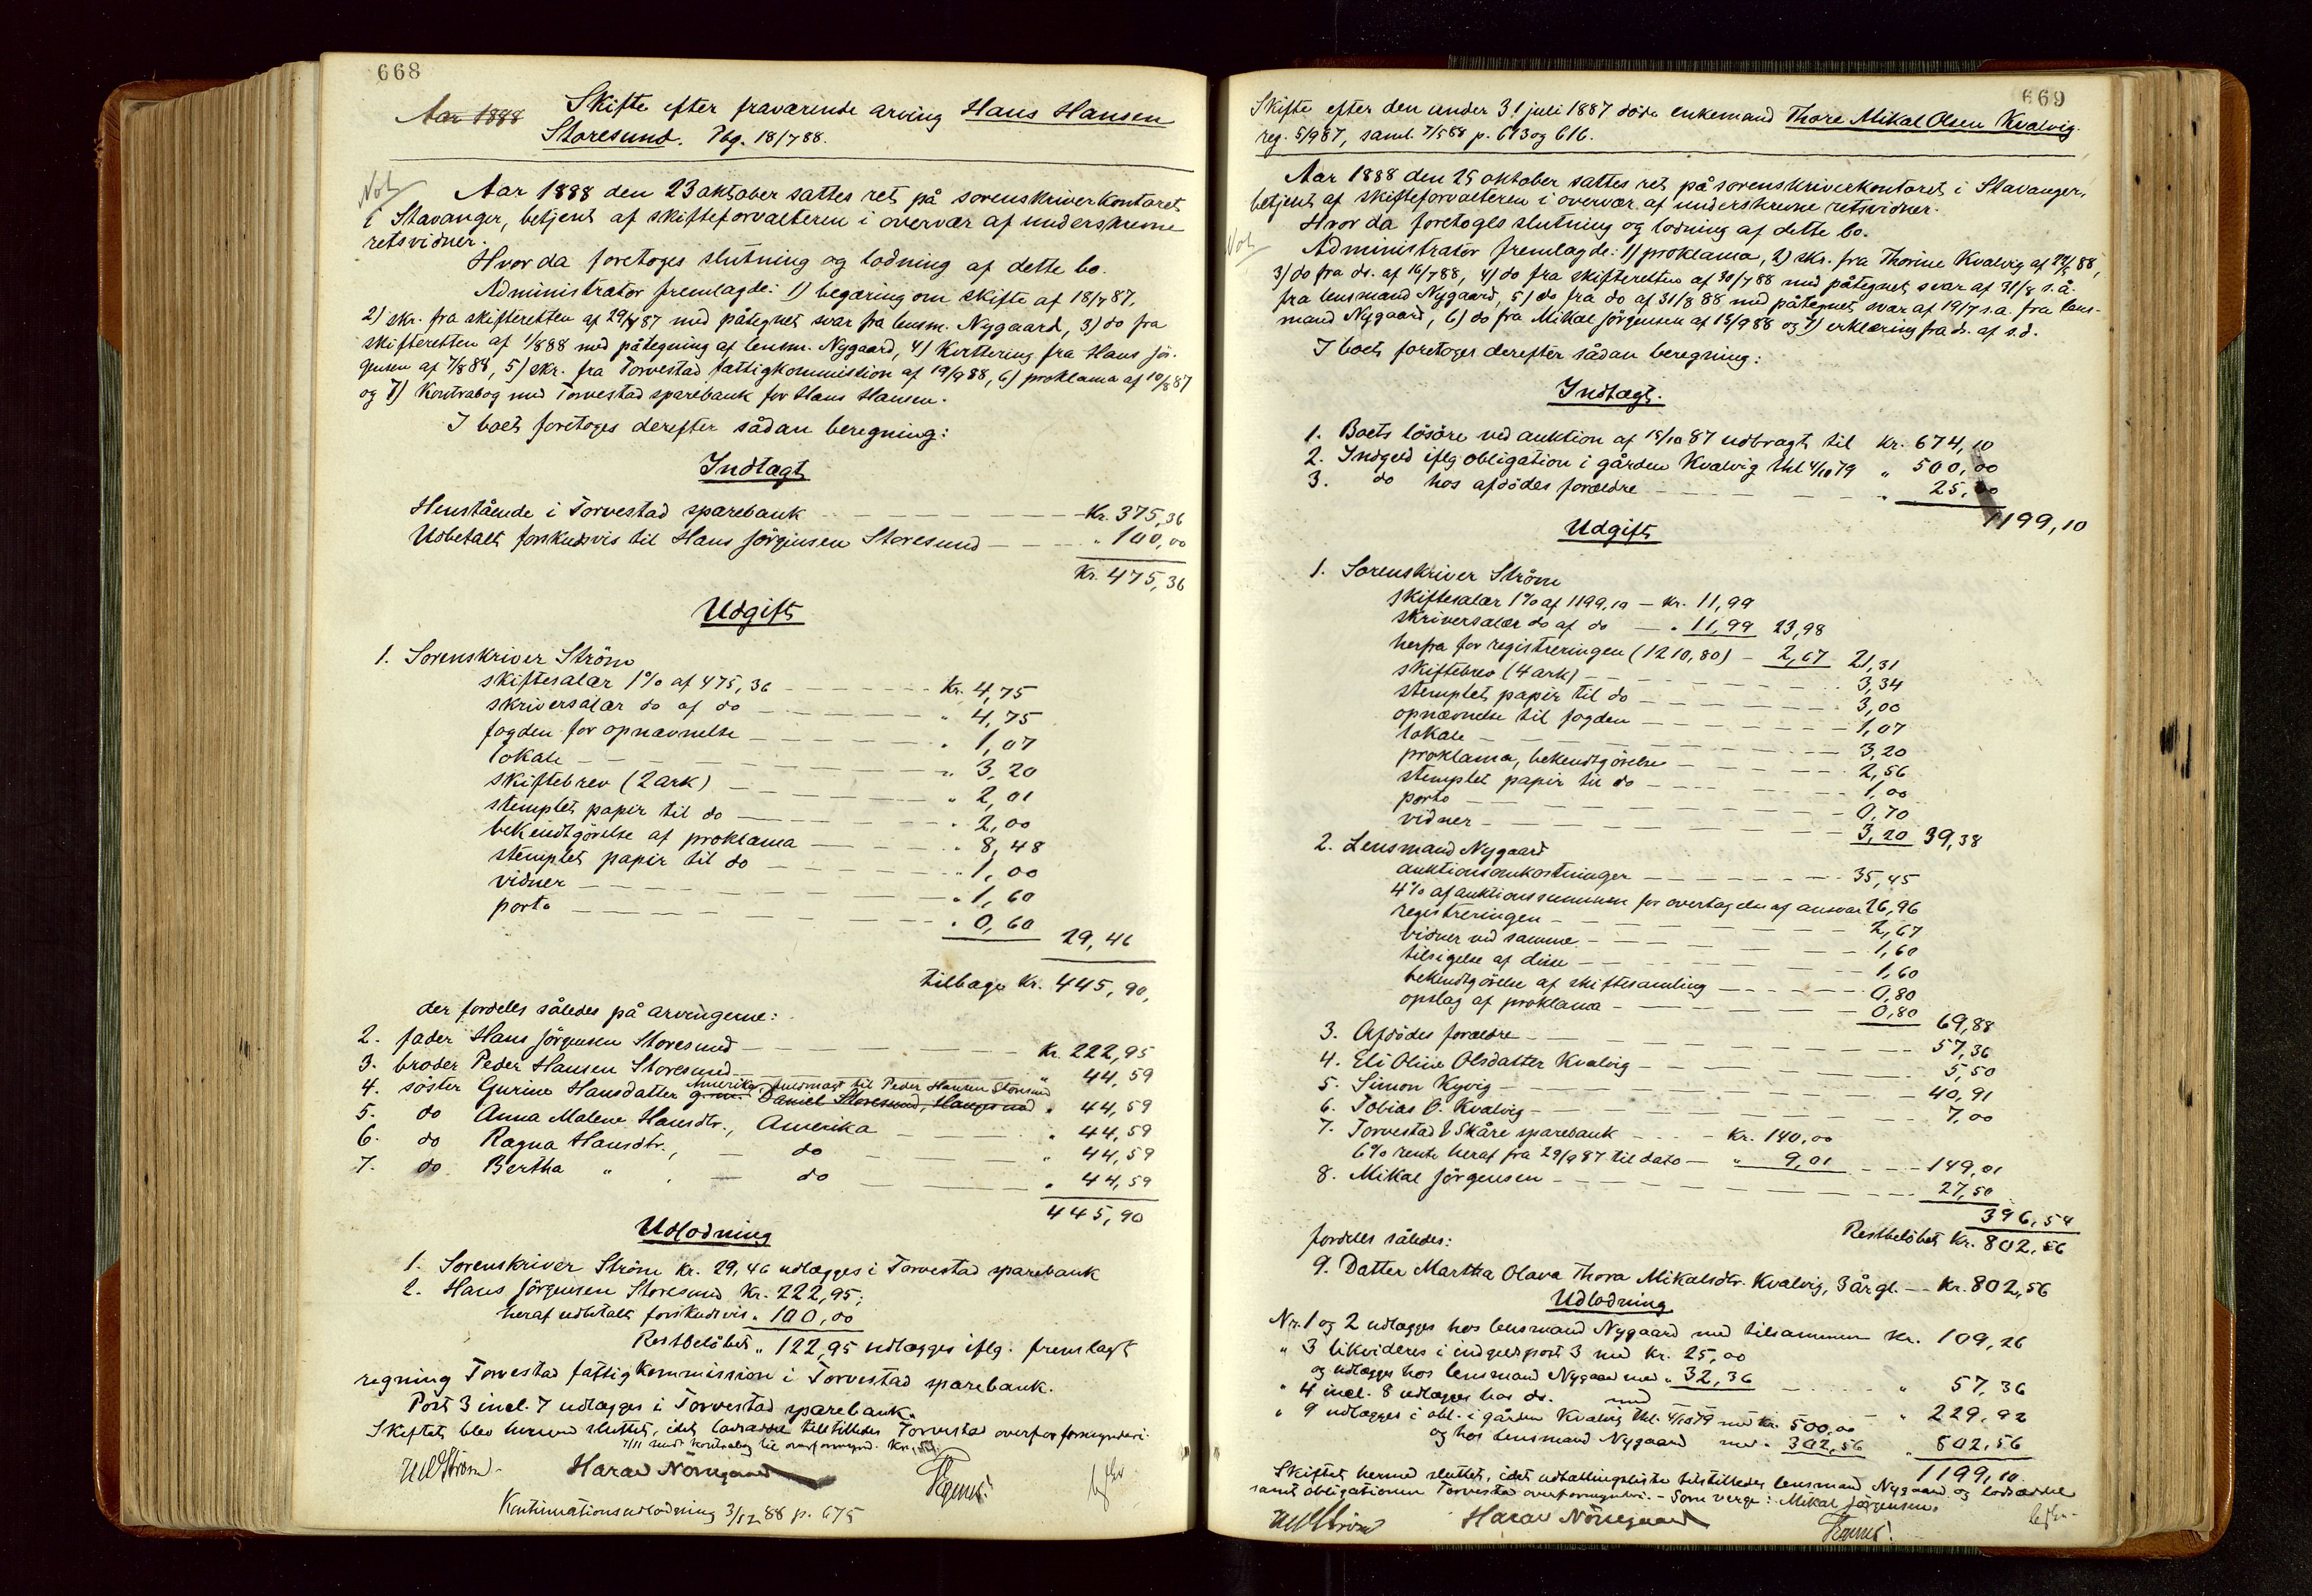 668
Aar 1888 Skifte efter fraværende arving Hans Hansen
Storesund. Tbg. 18/7 88.
Not
Aar 1888 den 23 oktober sattes ret på sorenskriverkontoret
i Stavanger, betjent af skifteforvalteren i overvær af underskrevne
retsvidner.
Hvor da foretoges slutning og lodning af dette bo.
Administrator fremlagde: 1) begæring om skifte af 18/7 87,
2) skr. fra skifteretten af 29/7 87 med påtegnet svar fra lensm. Nygaard, 3) do fra
skifteretten af 1/8 88 med påtegning af lensm. Nygaard, 4) Kvittering fra Hans Jör-
gensen af 7/8 88, 5) skr. fra Torvestad fattigkommission af 19/9 88, 6) proklama af 10/8 87
og 7) Kontrabog med Torvestad sparebank for Hans Hansen.
I boet foretoges derefter sådan beregning:
Indtægt
Henstående i Torvestad sparebank Kr. 375,36
Udbetalt forskudsvis til Hans Jörgensen Storesund " 100,00
Kr. 475,36
Udgift
1. Sorenskriver Ström
skiftesalær 1% af 475,36 Kr. 4,75
skriversalær do af do " 4,75
fogden for opnævnelse " 1,07
lokale " 3,20
skiftebrev (2 ark) " 2,01
stemplet papir til do " 2,00
bekendtgörelse af proklama " 8,48
stemplet papir til do " 1,00
vidner " 1,60
porto " 0,60 29,46
tilbage Kr. 445,90,
der fordeles således på arvingerne:
2. fader Hans Jörgensen Storesund Kr. 222,95
3. broder Peder Hansen Storesund " 44,59
Amerika, fuldmagt til Peder Hansen Storesund
4. söster Gurine Hansdatter g.m. Daniel Storesund, Haugesund " 44,59
5. do Anna Malene Hansdtr., Amerika " 44,59
6. do Ragna Hansdtr., do " 44,59
7. do Bertha " , do " 44,59
445,90
Udlodning
1. Sorenskriver Ström Kr. 29,46 udlægges i Torvestad sparebank
2. Hans Jörgensen Storesund Kr. 222,95;
heraf udbetalt forskudsvis " 100,00
Restbelöbet " 122,95 udlægges iflg. fremlagt
regning Torvestad fattigkommission i Torvestad sparebank.
Post 3 incl. 7 udlægges i Torvestad sparebank.
Skiftet blev hermed sluttet, idet lodsedde tilstilledes Torvestad overformynderi.
7/11 sendt kontrabog til overformynd.
Harald Nörregaard
Kontinuationsudlodning 3/12 88 p. 675
669
Skifte efter den under 31 juli 1887 döde enkemand Thore Mikal Olsen Kvalvig.
reg. 5/9 87, saml. 7/5 88 p. 613 og 616.
Aar 1888 den 25 oktober sattes ret på sorenskriverkontoret i Stavanger,
betjent af skifteforvalteren i overvær af underskrevne retsvidner.
Hvor da foretoges slutning og lodning af dette bo.
Not
Administrator fremlagde: 1) proklama, 2) skr. fra Thorine Kvalvig af 88,
3) do fra ds. af 16/7 88, 4) do fra skifteretten af 30/7 88 med påtegnet svar af 31/8 s.å.
fra lensmand Nygaard, 5) do fra do af 31/8 88 med påtegnet svar af 19/7 s.a. fra lens-
mand Nygaard, 6) do fra Mikal Jörgensen af 15/9 88 og 7) erklæring fra ds. af s.d.
I boet foretoges derefter sådan beregning:
Indtægt.
1. Boets lösöre ved auktion af 15/10 87 udbragt til Kr. 674,10
2. Indgeld iflg obligation i gården Kvalvig thl. 4/10 79 " 500,00
3. do hos afdödes forældre " 25,00
1199,10
Udgift
1. Sorenskriver Ström
skiftesalær 1% af 1199,10 - Kr. 11,99
skriversalær do af do - " 11,99 23,98
herfra for registreringen (1210,80) - 2,67 21,31
skiftebrev (4 ark) 3,34
stemplet papir til do 3,00
opnævnelse til fogden 1,07
lokale 3,20
proklama, bekendtgörelse 2,56
stemplet papir til do 1,00
porto 0,70
vidner 3,20 39,38
2. Lensmand Nygaard
auktionsomkostninger 35,45
4% af auktionssummen for overtagelse af ansvar 26,96
registreringen 2,67
vidner ved samme 1,60
tilsigelse af disse 1,60
bekendtgörelse af skiftesamling 0,80
opslag af proklama 0,80 69,88
3. Afdödes forældre 57,36
4. Eli Oline Olsdatter Kvalvig 5,50
5. Simon Kyvig 40,91
6. Tobias O. Kvalvig 7,00
7. Torvestad & Skåre sparebank Kr. 140,00
6% rente heraf fra 29/9 87 til dato " 9,01 149,01
8. Mikal Jörgensen 27,50
396,54
Restbelöbet Kr. 802,56
fordeles således:
9. Datter Martha Olava Thora Mikalsdtr. Kvalvig, 3 år gl. Kr. 802,56
Udlodning
Nr. 1 og 2 udlægges hos lensmand Nygaard med tilsammen Kr. 109,26
" 3 likvideres i indgeldspost 3 med Kr. 25,00
og udlægges hos lensmand Nygaard med " 32,36 " 57,36
" 4 incl. 8 udlægges hos ds. med " 229,92
" 9 udlægges i obl. i gården Kvalvig thl. 4/10 79 med Kr. 500,00
og hos lensmand Nygaard med " 302,56 " 802,56
1199,10
Skiftet hermed sluttet, idet udtallingsliste tilstilledes lensmand Nygaard og lodsedde
samt obligationen Torvestad overformynderi. - Som verge: Mikal Jörgensen.
Harald Nörregaard